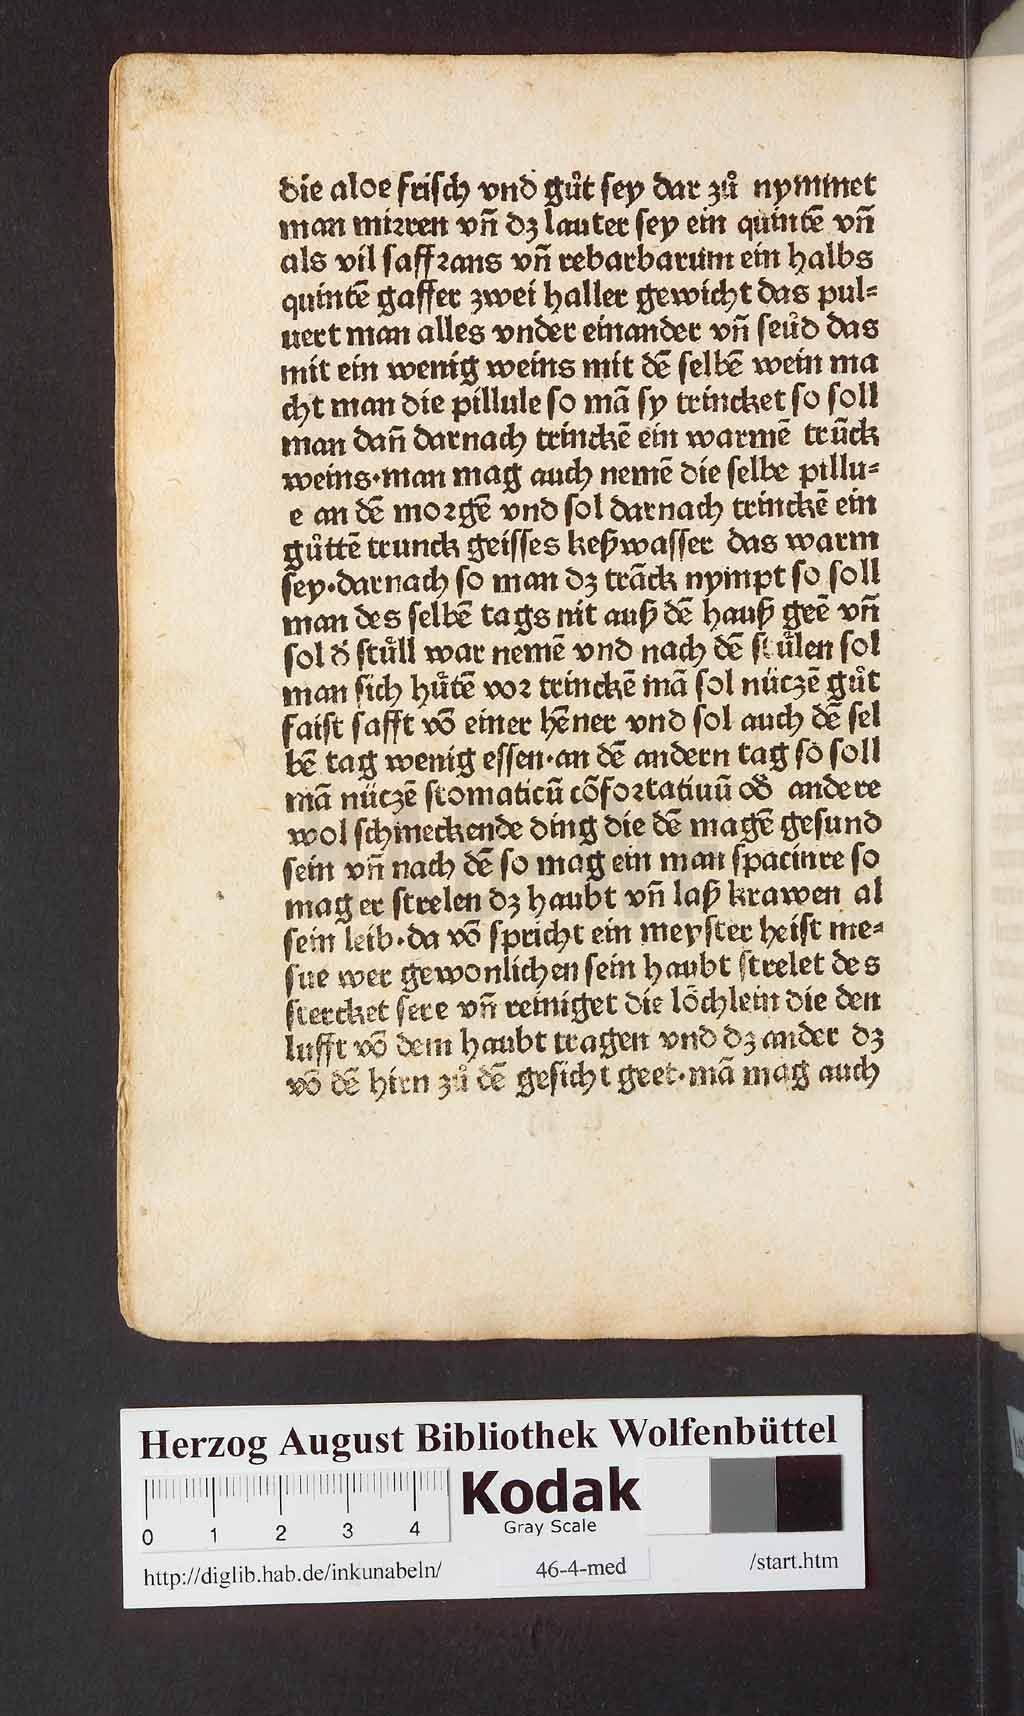 die aloe frisch vnd gůt sey dar zů nymmet
man mirren vn̄ dz lauter sey ein quintē vn̄
als vil saffrans vn̄ rebarbarum ein halbs
quintē gaffer zwei haller gewicht das pul⸗
uert man alles vnder einander vn̄ seůd das
mit ein wenig weins mit dē selbē wein ma
cht man die pillule so mā sy trincket so soll
man dan̄ darnach trinckē ein warmē trūck
weins·man mag auch nemē die selbe pillu⸗
e an dē morgē vnd sol darnach trinckē ein
gůttē trunck geisses keßwasser das warm
sey·darnach so man dz trāck nympt so soll
man des selbē tags nit auß dē hauß geē vn̄
sol d̕ stůll war nemē vnd nach dē stůlen sol
man sich hůtē vor trinckē mā sol nüczē gůt
faist safft vō einer hēner vnd sol auch dē sel
bē tag wenig essen·an dē andern tag so soll
mā nüczē stomaticū cōfortatiuū od̕ andere
wol schmeckende ding die dē magē gesund
sein vn̄ nach dē so mag ein man spacinre so
mag er strelen dz haubt vn̄ laß krawen al
sein leib·da vō spricht ein meyster heist me⸗
sue wer gewonlichen sein haubt strelet des
stercket sere vn̄ reiniget die löchlein die den
lufft vō dem haubt tragen vnd dz ander dz
vō dē hirn zů dē gesicht geet·mā mag auch
Herzog August Bibliothek Wolfenbüttel
Kodak
Gray Scale
0 1 2 3 4
http://diglib.hab.de/inkunabeln/ 46-4-med /start.htm